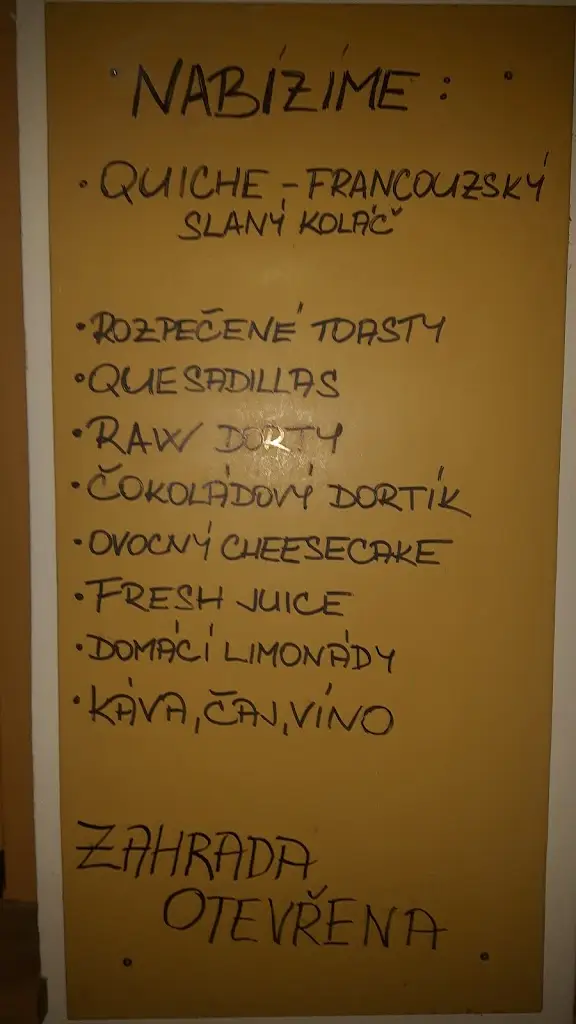 NABÍZÍME:
• QUICHE - FRANCOUZSKÝ
SLANÝ KOLÁČ
• ROZPEČENÉ TOASTY
• QUESADILLAS
• RAW DORTY
• ČOKOLÁDOVÝ DORTÍK
• OVOCNÝ CHEESECAKE
• FRESH JUICE
• DOMÁCÍ LIMONÁDY
• KÁVA, ČAJ, VÍNO
ZAHRADA
OTEVŘENA